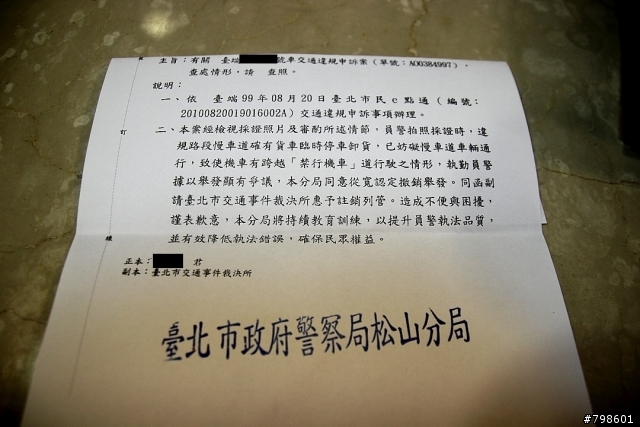 主旨：有關 臺端 號車交通違規申訴案(單號：AO0384997)，
查處情形，請 查照。
說明：
一、依 臺端99年08月20日臺北市民e點通(編號：
20100820019016002A)交通違規申訴事項辦理。
二、本案經檢視採證照片及審酌所述情節，員警拍照採證時，違
規路段慢車道確有貨車臨時停車卸貨，已妨礙慢車道車輛通
行，致使機車有跨越「禁行機車」道行駛之情形，執勤員警
據以舉發顯有爭議，本分局同意從寬認定撤銷舉發。同函副
請臺北市交通事件裁決所惠予註銷列管。造成不便與困擾，
謹表歉意，本分局將持續教育訓練，以提升員警執法品質，
並有效降低執法錯誤，確保民眾權益。
訂
線
正本： 君
副本：臺北市交通事件裁決所
臺北市政府警察局松山分局
#798601